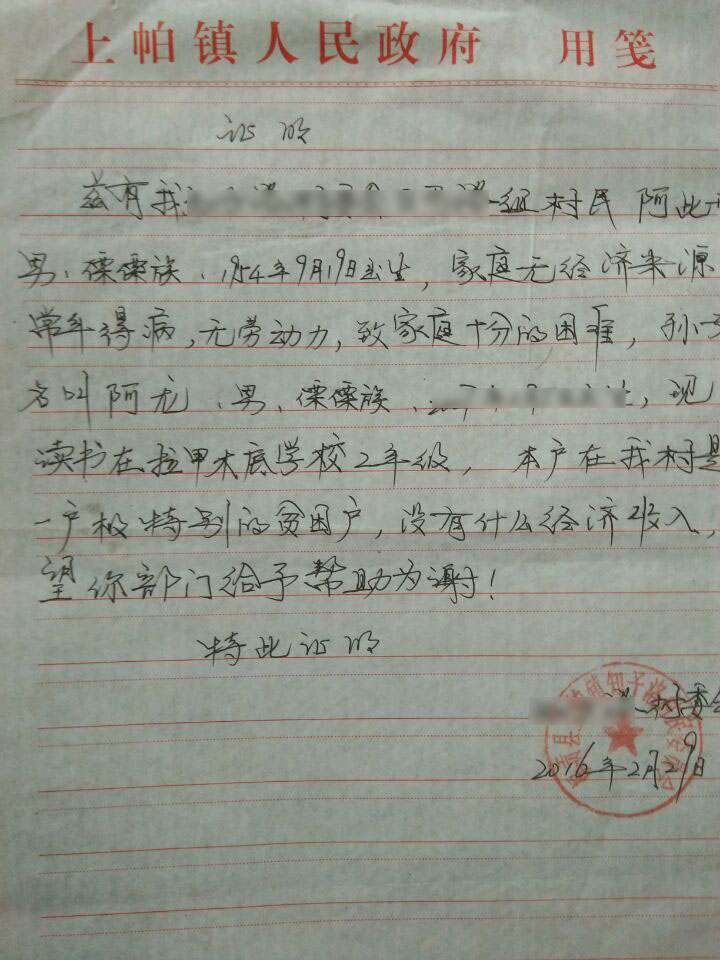 上帕镇人民政府 用笺
证明
兹有我 一组村民 阿此
男、傈傈族、1954年9月19日出生，家庭无经济来源
常年得病，无劳动力，致家庭十分的困难，孙子
名叫阿龙、男、傈傈族、 ，现
读书在拉甲木底学校2年级， 本户在我村是
一户极特别的贫困户，没有什么经济收入，
望你部门给予帮助为谢！
特此证明
村委会
2016年2月29日